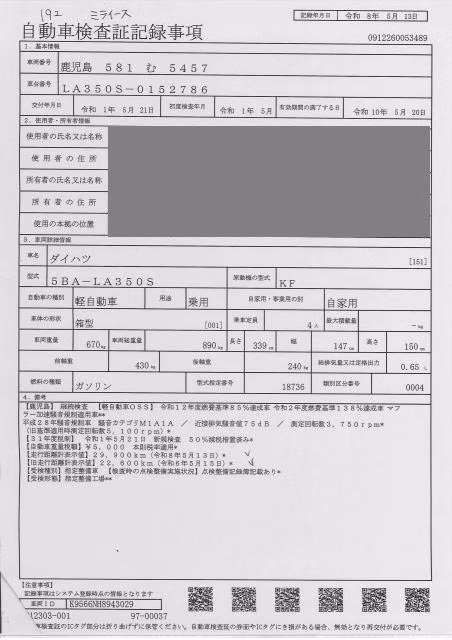 192 ミライース
記録年月日 令和 8年 5月 13日
自動車検査証記録事項
0912260053489
1. 基本情報
車両番号 鹿児島 581 む 5457
車台番号 LA350S-0152786
交付年月日 令和 1年 5月 21日 初度検査年月 令和 1年 5月 有効期間の満了する日 令和10年 5月 20日
2. 使用者・所有者情報
使用者の氏名又は名称
使用者の住所
所有者の氏名又は名称
所有者の住所
使用の本拠の位置
3. 車両詳細情報
車名 ダイハツ [151]
型式 5BA-LA350S 原動機の型式 KF
自動車の種別 軽自動車 用途 乗用 自家用・事業用の別 自家用
車体の形状 箱型 [001] 乗車定員 4人 最大積載量 -kg
車両重量 670kg 車両総重量 890kg 長さ 339cm 幅 147cm 高さ 150cm
前軸重 430kg 後軸重 240kg 総排気量又は定格出力 0.65 L
燃料の種類 ガソリン 型式指定番号 18736 類別区分番号 0004
4. 備考
【鹿児島】 継続検査 【軽自動車OSS】 令和12年度燃費基準85%達成車 令和2年度燃費基準138%達成車 マフ
ラー加速騒音規制適用車**
平成28年騒音規制車 騒音カテゴリM1A1A / 近接排気騒音値75dB / 測定回転数3,750rpm*
(旧基準適用時測定回転数5,100rpm)*
【31年度税制】 令和1年5月21日 新規検査 50%減税措置済み*
【自動車重量税額】¥5,000 本則税率適用*
【走行距離計表示値】29,900km(令和8年5月13日)*
【旧走行距離計表示値】22,600km(令和6年5月15日)*
【受検種別】指定整備車 【検査時の点検整備実施状況】点検整備記録簿記載あり*
【受検形態】指定整備工場**
【注意事項】
記録事項はシステム登録時点の情報となります
車両ID K9566NH8943029
12303-001 97-00037
検査証のICタグ部分は折り曲げずに保管ください。自動車検査証の券面やICタグにき損がある場合、無効となり再交付が必要です。